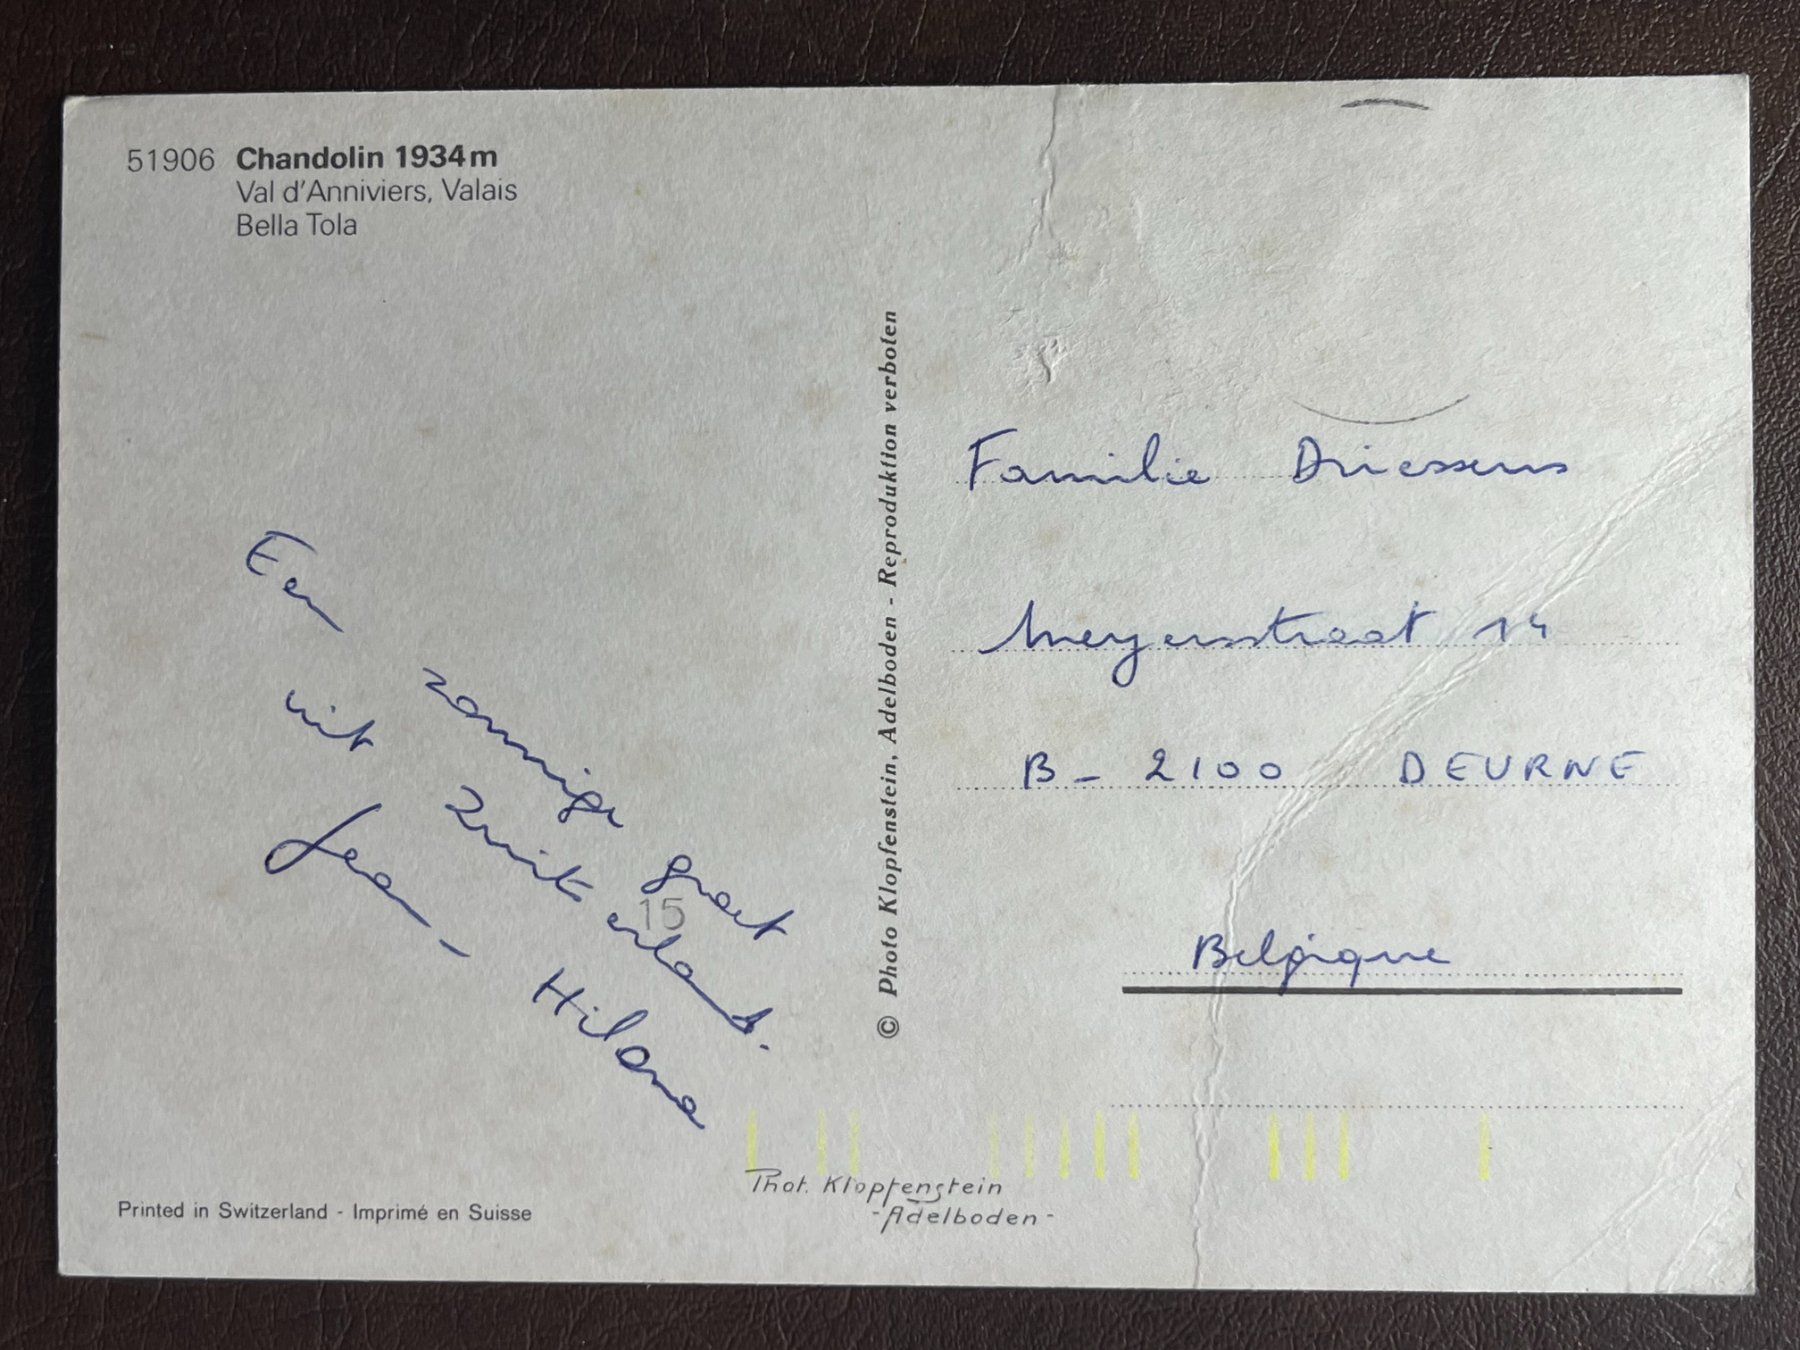 51906 Chandolin 1934 m
Val d'Anniviers, Valais
Bella Tola
Een zonnige groet
uit Zwitserland.
Jean - Hilona
15
© Photo Klopfenstein, Adelboden - Reproduktion verboten
Familie Driessens
Meyersstraat 14
B - 2100 DEURNE
Belgique
Phot. Klopfenstein
- Adelboden -
Printed in Switzerland - Imprimé en Suisse